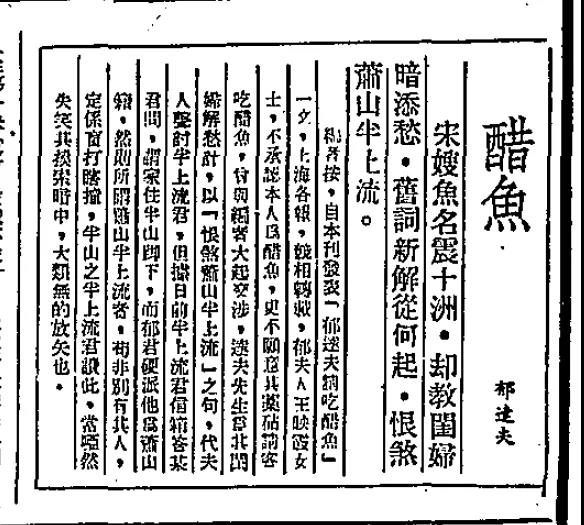 醋魚
郁達夫
宋嫂魚名震十洲。却教閨婦
暗添愁。舊詞新解從何起。恨煞
蕭山半上流。
編者按，自本刊發表「郁達夫請吃醋魚」
一文，上海各報，競相轉載，郁夫人王映霞女
士，不承認本人爲醋魚，更不願意其藁砧請客
吃醋魚，曾與編者大起交涉，達夫先生爲其閫
婦解愁計，以「恨煞蕭山半上流」之句，代夫
人聲討半上流君，但據日前半上流君信箱答某
君問，謂家住半山脚下，而郁君硬派他爲蕭山
籍，然則所謂蕭山半上流者，苟非別有其人，
定係盲打瞎撞，半山之半上流君讀此，當啞然
失笑其摸索暗中，大類無的放矢也。